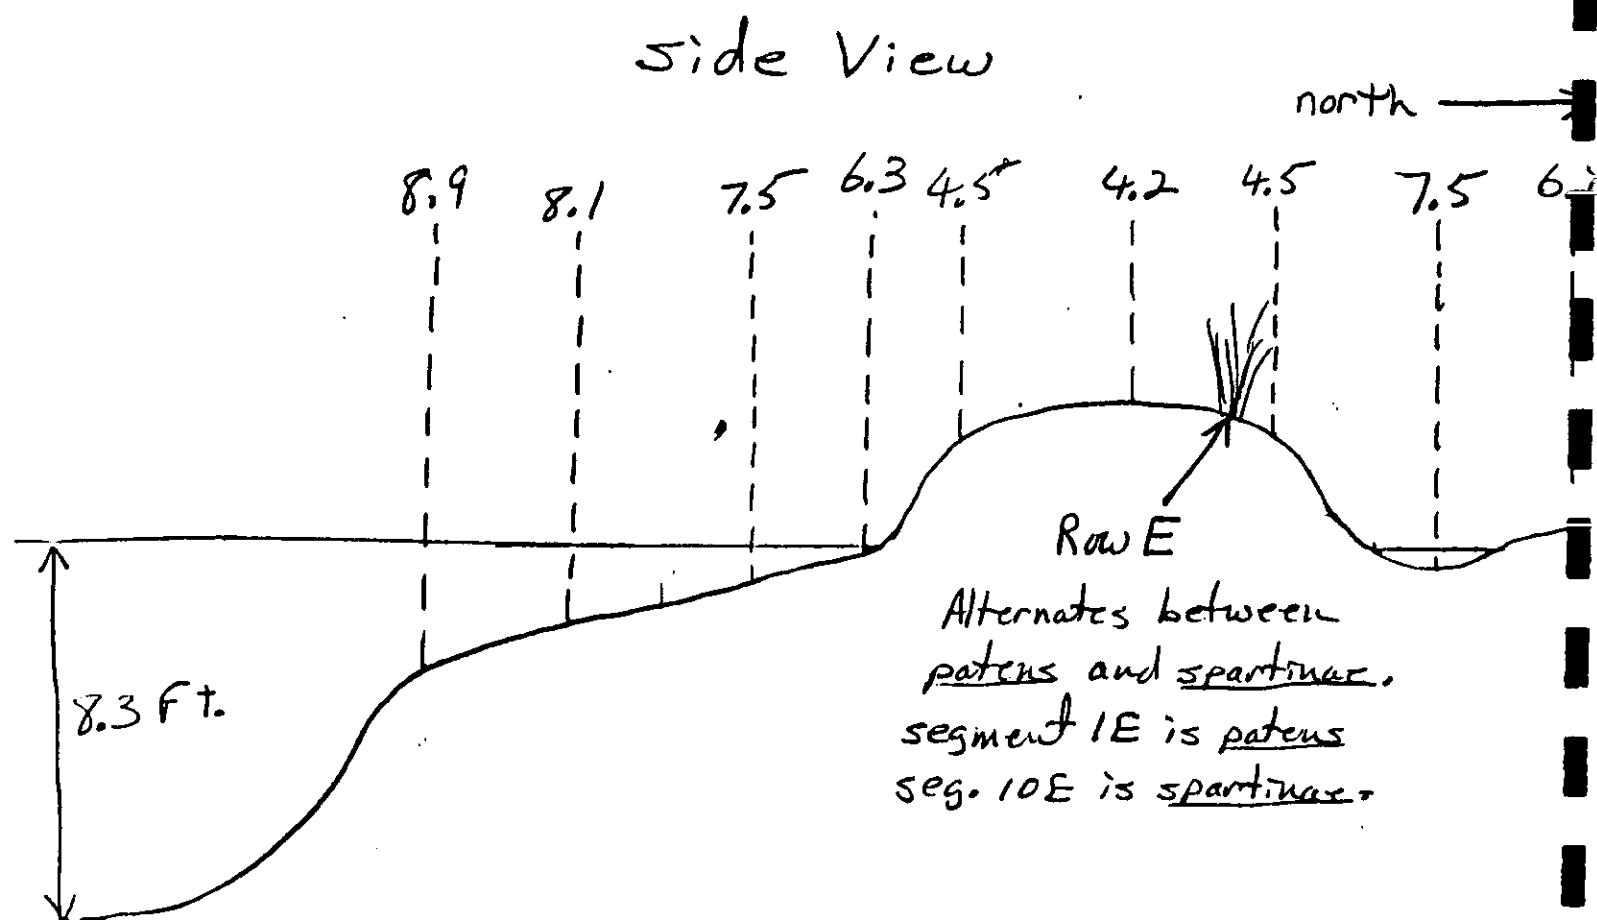 Side View
north
8.9 8.1 7.5 6.3 4.5 4.2 4.5 7.5
8.3 Ft.
Row E
Alternates between
patens and spartinae.
segment 1E is patens
seg. 10E is spartinae.